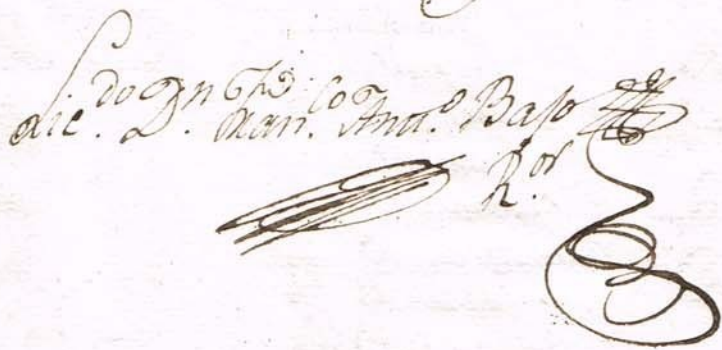 Lic.do D.n Fran.co Ant.o Baso
R.or